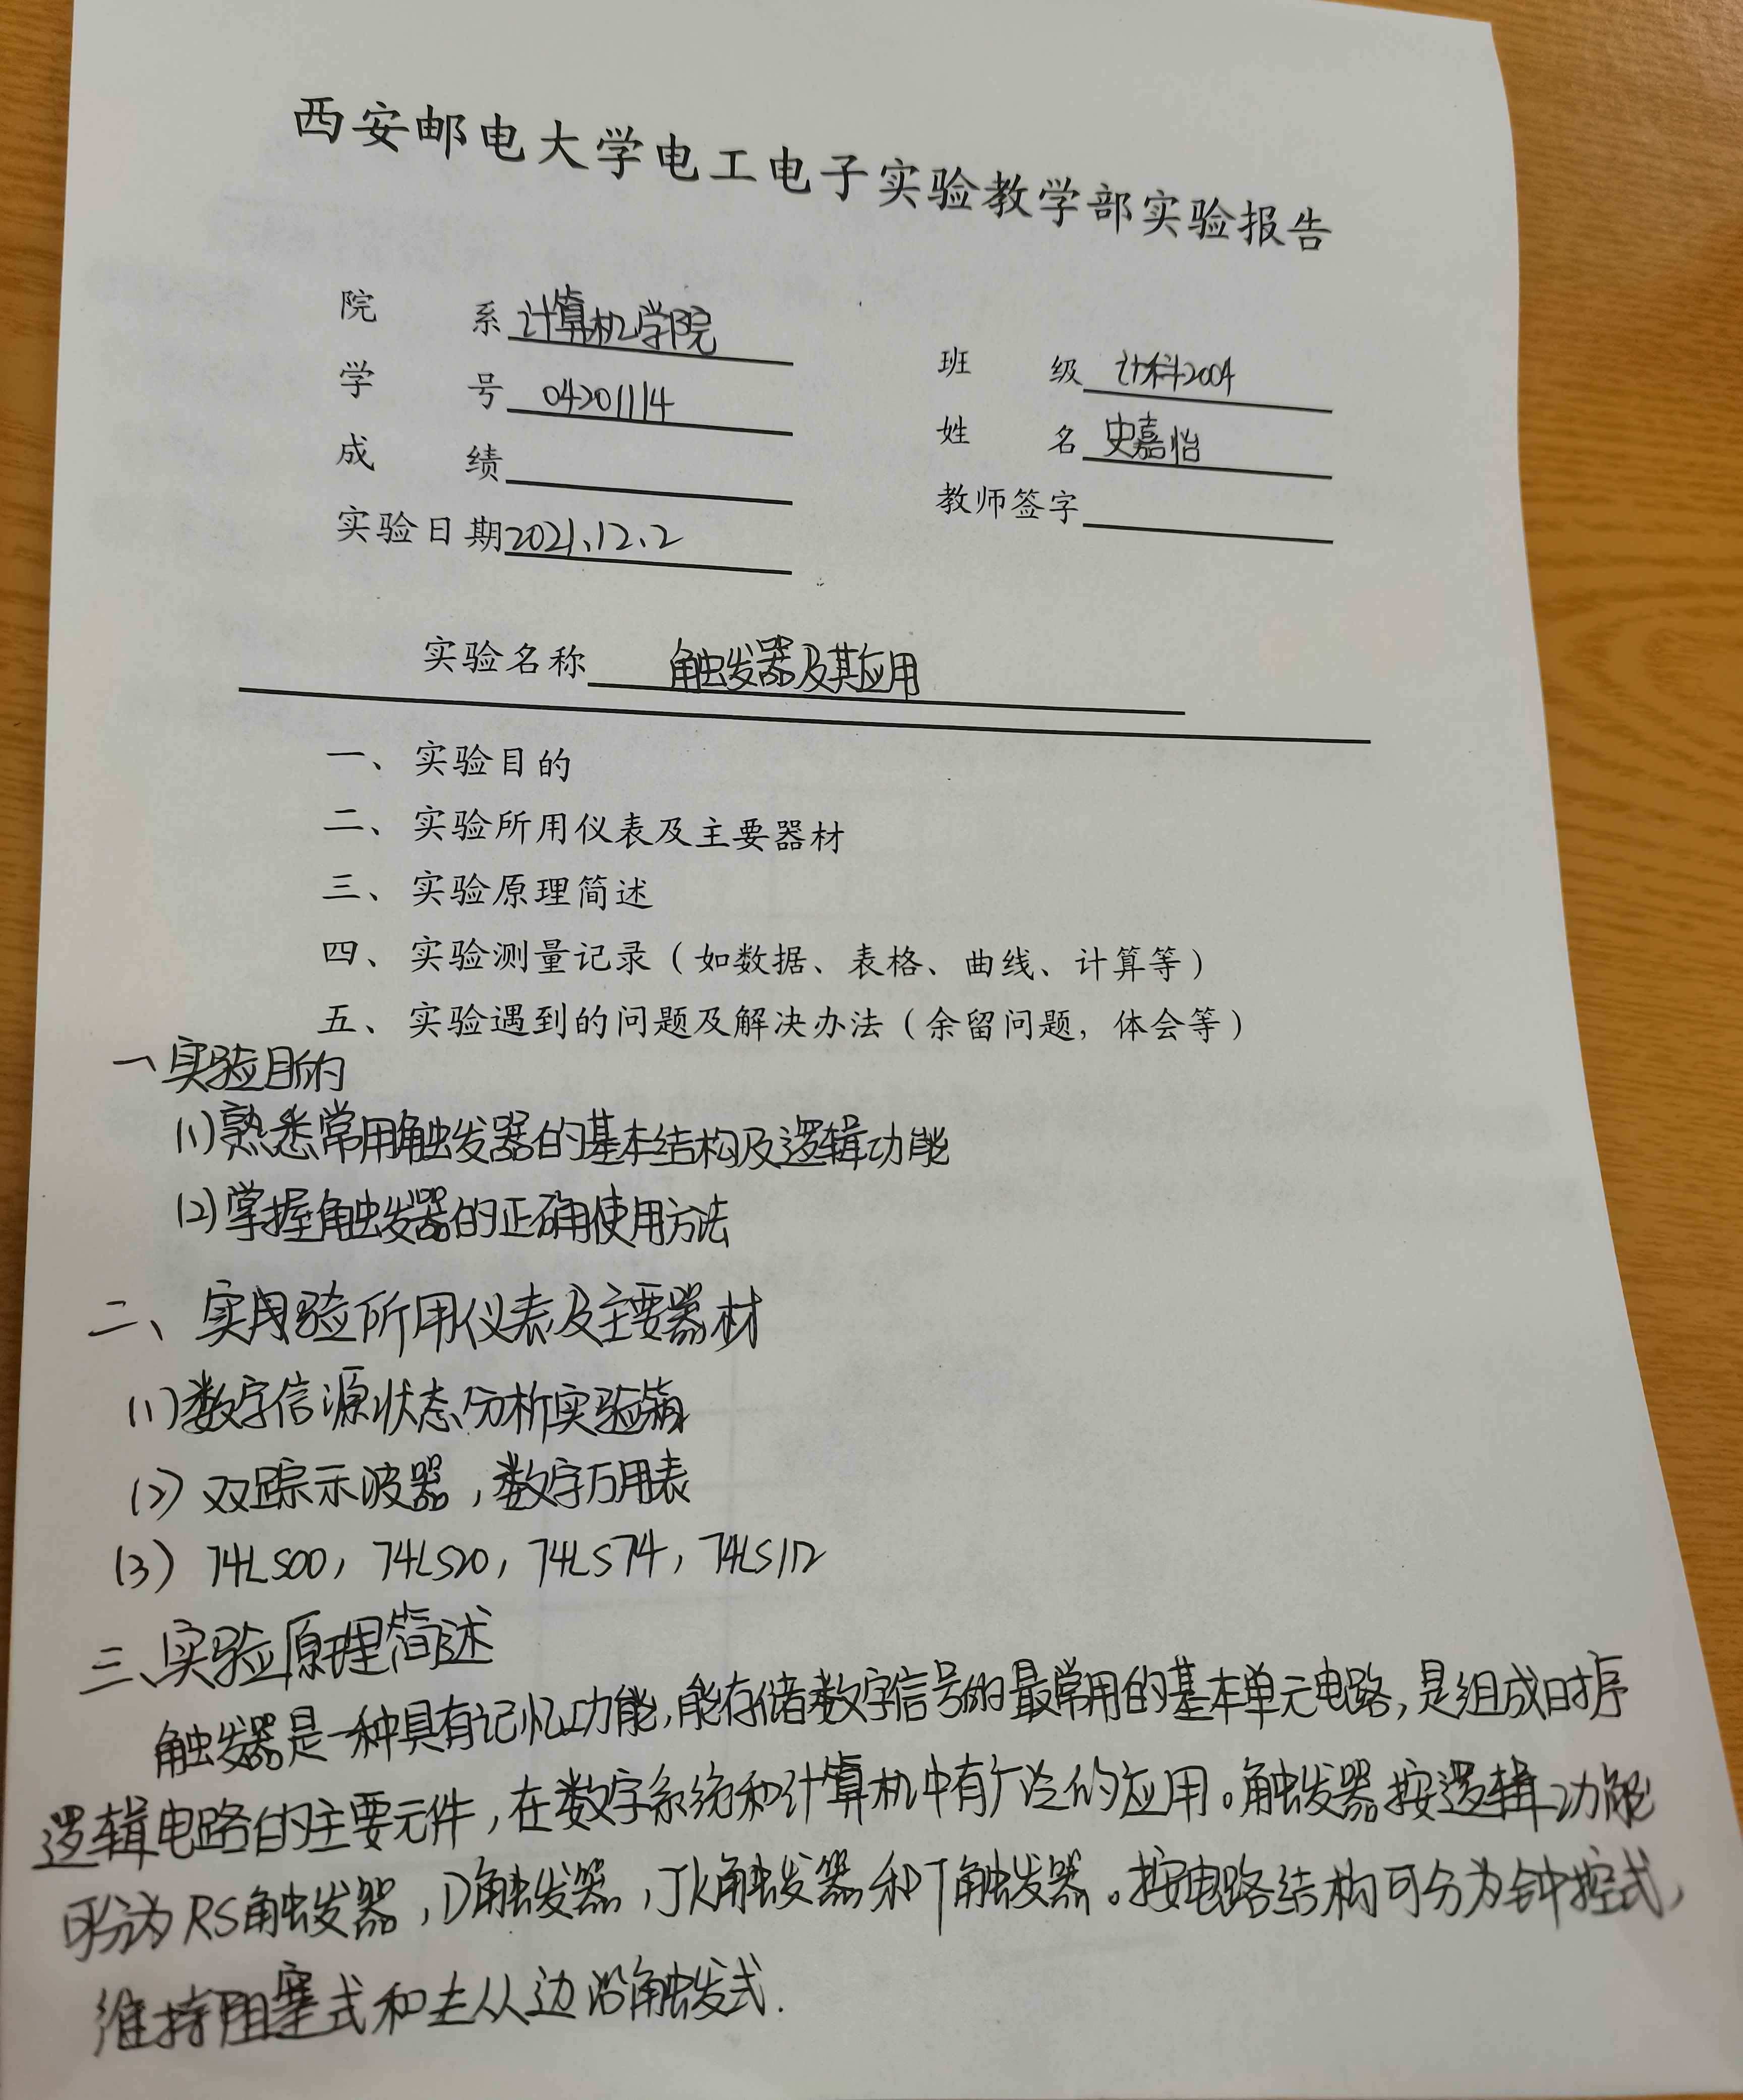 西安邮电大学电工电子实验教学部实验报告
院 系 计算机学院
班 级 计科2004
学 号 04201114
姓 名 史嘉怡
成 绩
教师签字
实验日期 2021.12.2
实验名称 触发器及其应用
一、实验目的
二、实验所用仪表及主要器材
三、实验原理简述
四、实验测量记录（如数据、表格、曲线、计算等）
五、实验遇到的问题及解决办法（余留问题，体会等）
一、实验目的
(1)熟悉常用触发器的基本结构及逻辑功能
(2)掌握触发器的正确使用方法
二、实验所用仪表及主要器材
(1)数字信源状态分析实验箱
(2) 双踪示波器，数字万用表
(3) 74LS00，74LS20，74LS74，74LS112
三、实验原理简述
触发器是一种具有记忆功能，能存储数字信号的最常用的基本单元电路，是组成时序
逻辑电路的主要元件，在数字系统和计算机中有广泛的应用。触发器按逻辑功能
可分为RS触发器，D触发器，JK触发器和T触发器。按电路结构可分为钟控式，
维持阻塞式和主从边沿触发式.